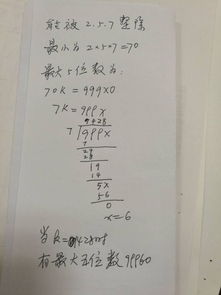 能被2.5.7整除
最小为2×5×7=70
最大5位数为:
70k=999x0
7k=999x
1428
7 999x
7
29
28
19
14
5x
56
0
x=6
当k=1428时
有最大五位数99960